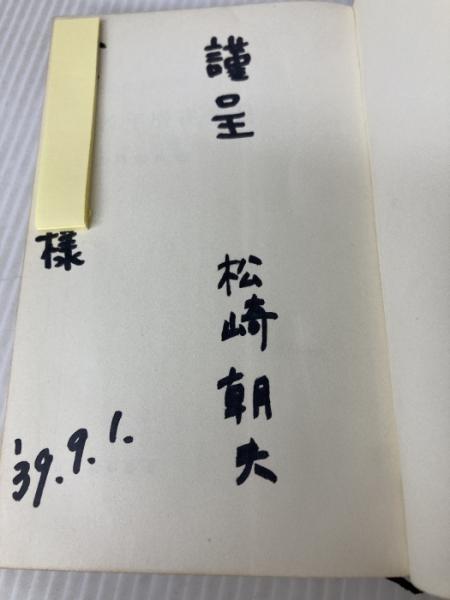 謹呈
松崎朝夫
様
'39.9.1.